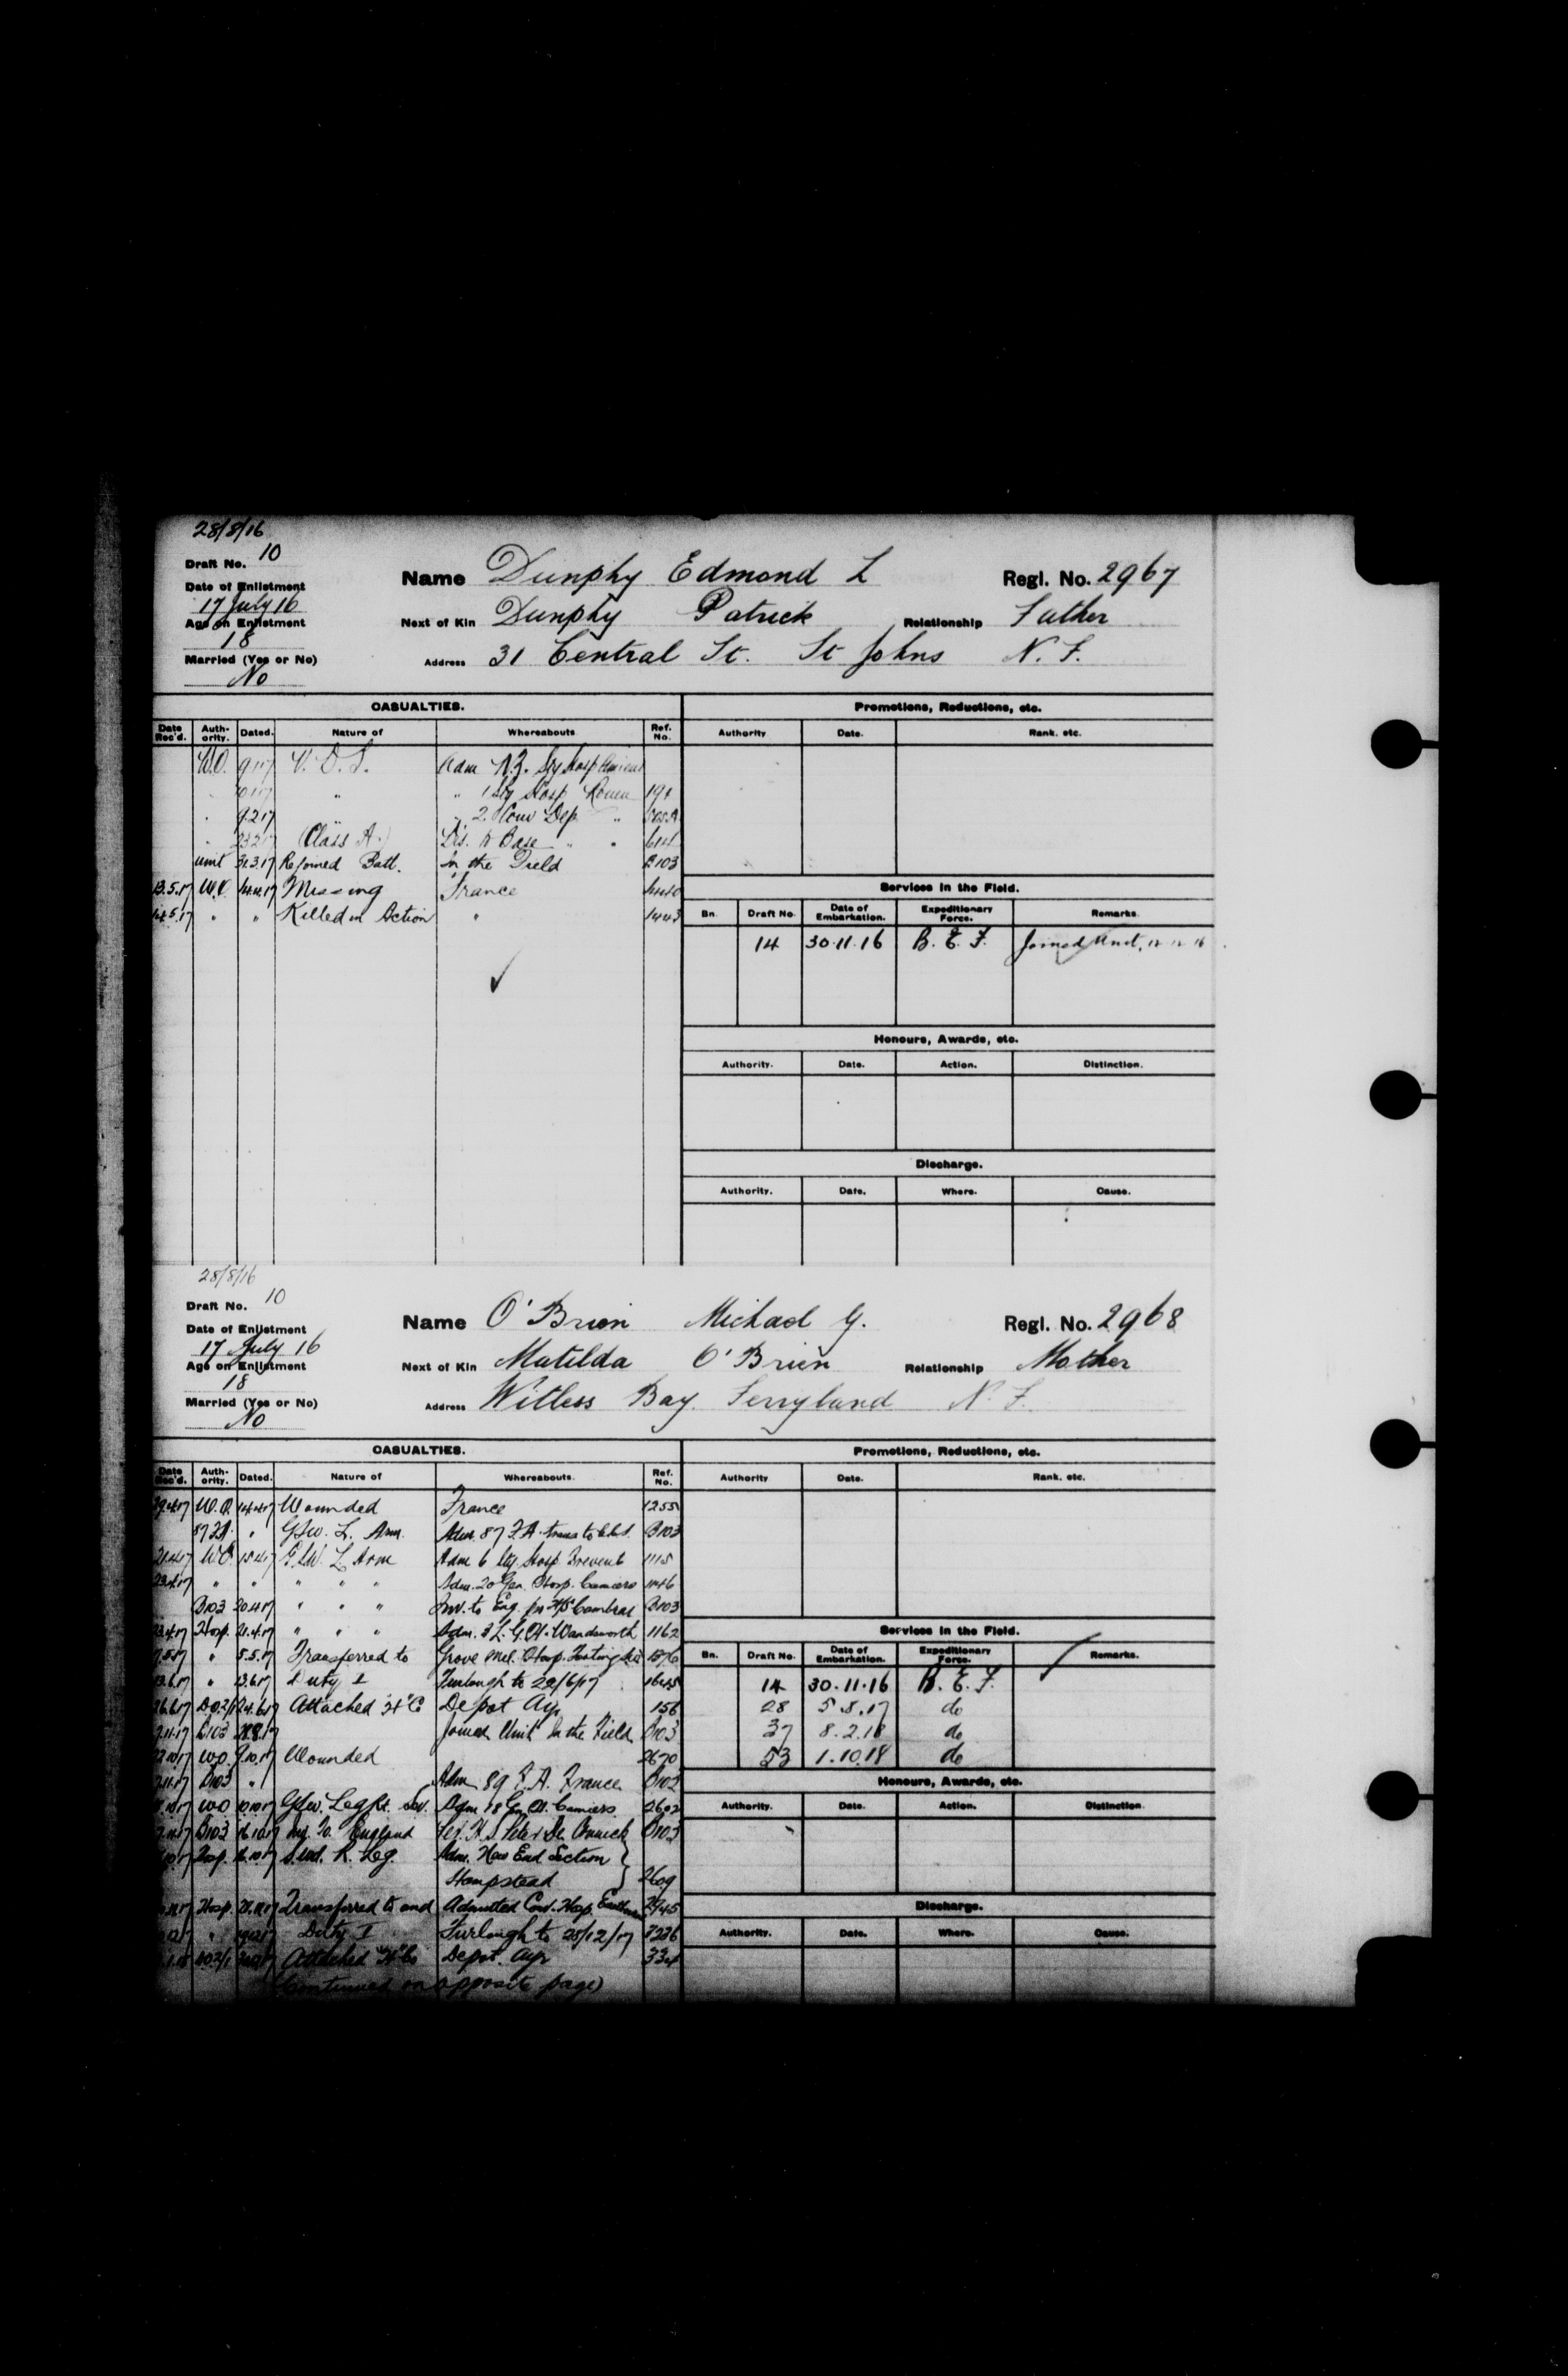 28/8/16
Draft No. 10
Date of Enlistment
17 July 16
Age on Enlistment
18
Married (Yes or No)
No
Name Dunphy Edmond L Regl. No. 2967
Next of Kin Dunphy Patrick Relationship Father
Address 31 Central St. St Johns N. F.
CASUALTIES.
Date Rec'd. Authority. Dated. Nature of Whereabouts Ref. No.
W.O. V. D. S. Adm N.Z. Sty Hosp Amiens
" " 1 Sty Hosp Rouen
9.2.17 " 2. Conv Dep "
(Class A.) Dis. to Base " " 614
Unit 31.3.17 Rejoined Batt. In the Field B103
13.5.17 W.O. 14.4.17 Missing France
14.5.17 " " Killed in Action " 1443
Promotions, Reductions, etc.
Authority Date. Rank. etc.
Services in the Field.
Bn. Draft No. Date of Embarkation. Expeditionary Force. Remarks.
14 30.11.16 B. E. F. Joined Unit, 12.12.16
Honours, Awards, etc.
Authority. Date. Action. Distinction.
Discharge.
Authority. Date. Where. Cause.
28/8/16
Draft No. 10
Date of Enlistment
17 July 16
Age on Enlistment
18
Married (Yes or No)
No
Name O'Brien Michael G. Regl. No. 2968
Next of Kin Matilda O'Brien Relationship Mother
Address Witless Bay. Ferryland N. F.
CASUALTIES.
Date Rec'd. Authority. Dated. Nature of Whereabouts. Ref. No.
W.O. 14.4.17 Wounded France 1255
87 F.A. " GSW. L. Arm. Adm. 87 F.A. trans to B103
21.4.17 W.O. 15.4.17 G.S.W. L Arm Adm 6 Sty. Hosp. Frevent 1115
23.4.17 " " " " " Adm. 20 Gen. Hosp. Camiers 1146
B103 20.4.17 " " " Inv. to Eng. per H/S Cambrai B103
23.4.17 Hosp. 21.4.17 " " " Adm. 3 L. G. H. Wandsworth 1162
7.5.17 " 5.5.17 Transferred to Grove Mil. Hosp. Tooting 1376
13.6.17 " 13.6.17 Duty I Furlough to 22/6/17 1645
26.6.17 24.6.17 Attached "H" C Depot Ayr 156
B103 Joined Unit In the Field B103
W.O. 9.10.17 Wounded 2670
B103 " Adm 89 F.A. France B103
W.O. 10.10.17 GSW. Leg Rt. Sev. Adm 18 Gen H. Camiers 2602
B103 16.10.17 Inv. to England B103
Hosp. R. Leg. Adm. New End Section
Hampstead 2609
Hosp. Transferred to and Admitted Con. Hosp. 2945
" Duty I Furlough to 28/12/17 3236
Attached "H" Co Depot Ayr 334
(Continued on opposite page)
Promotions, Reductions, etc.
Authority Date. Rank. etc.
Services in the Field.
Bn. Draft No. Date of Embarkation. Expeditionary Force. Remarks.
14 30.11.16 B. E. F.
28 5.8.17 do
37 8.2.18 do
53 1.10.18 do
Honours, Awards, etc.
Authority. Date. Action. Distinction.
Discharge.
Authority. Date. Where. Cause.